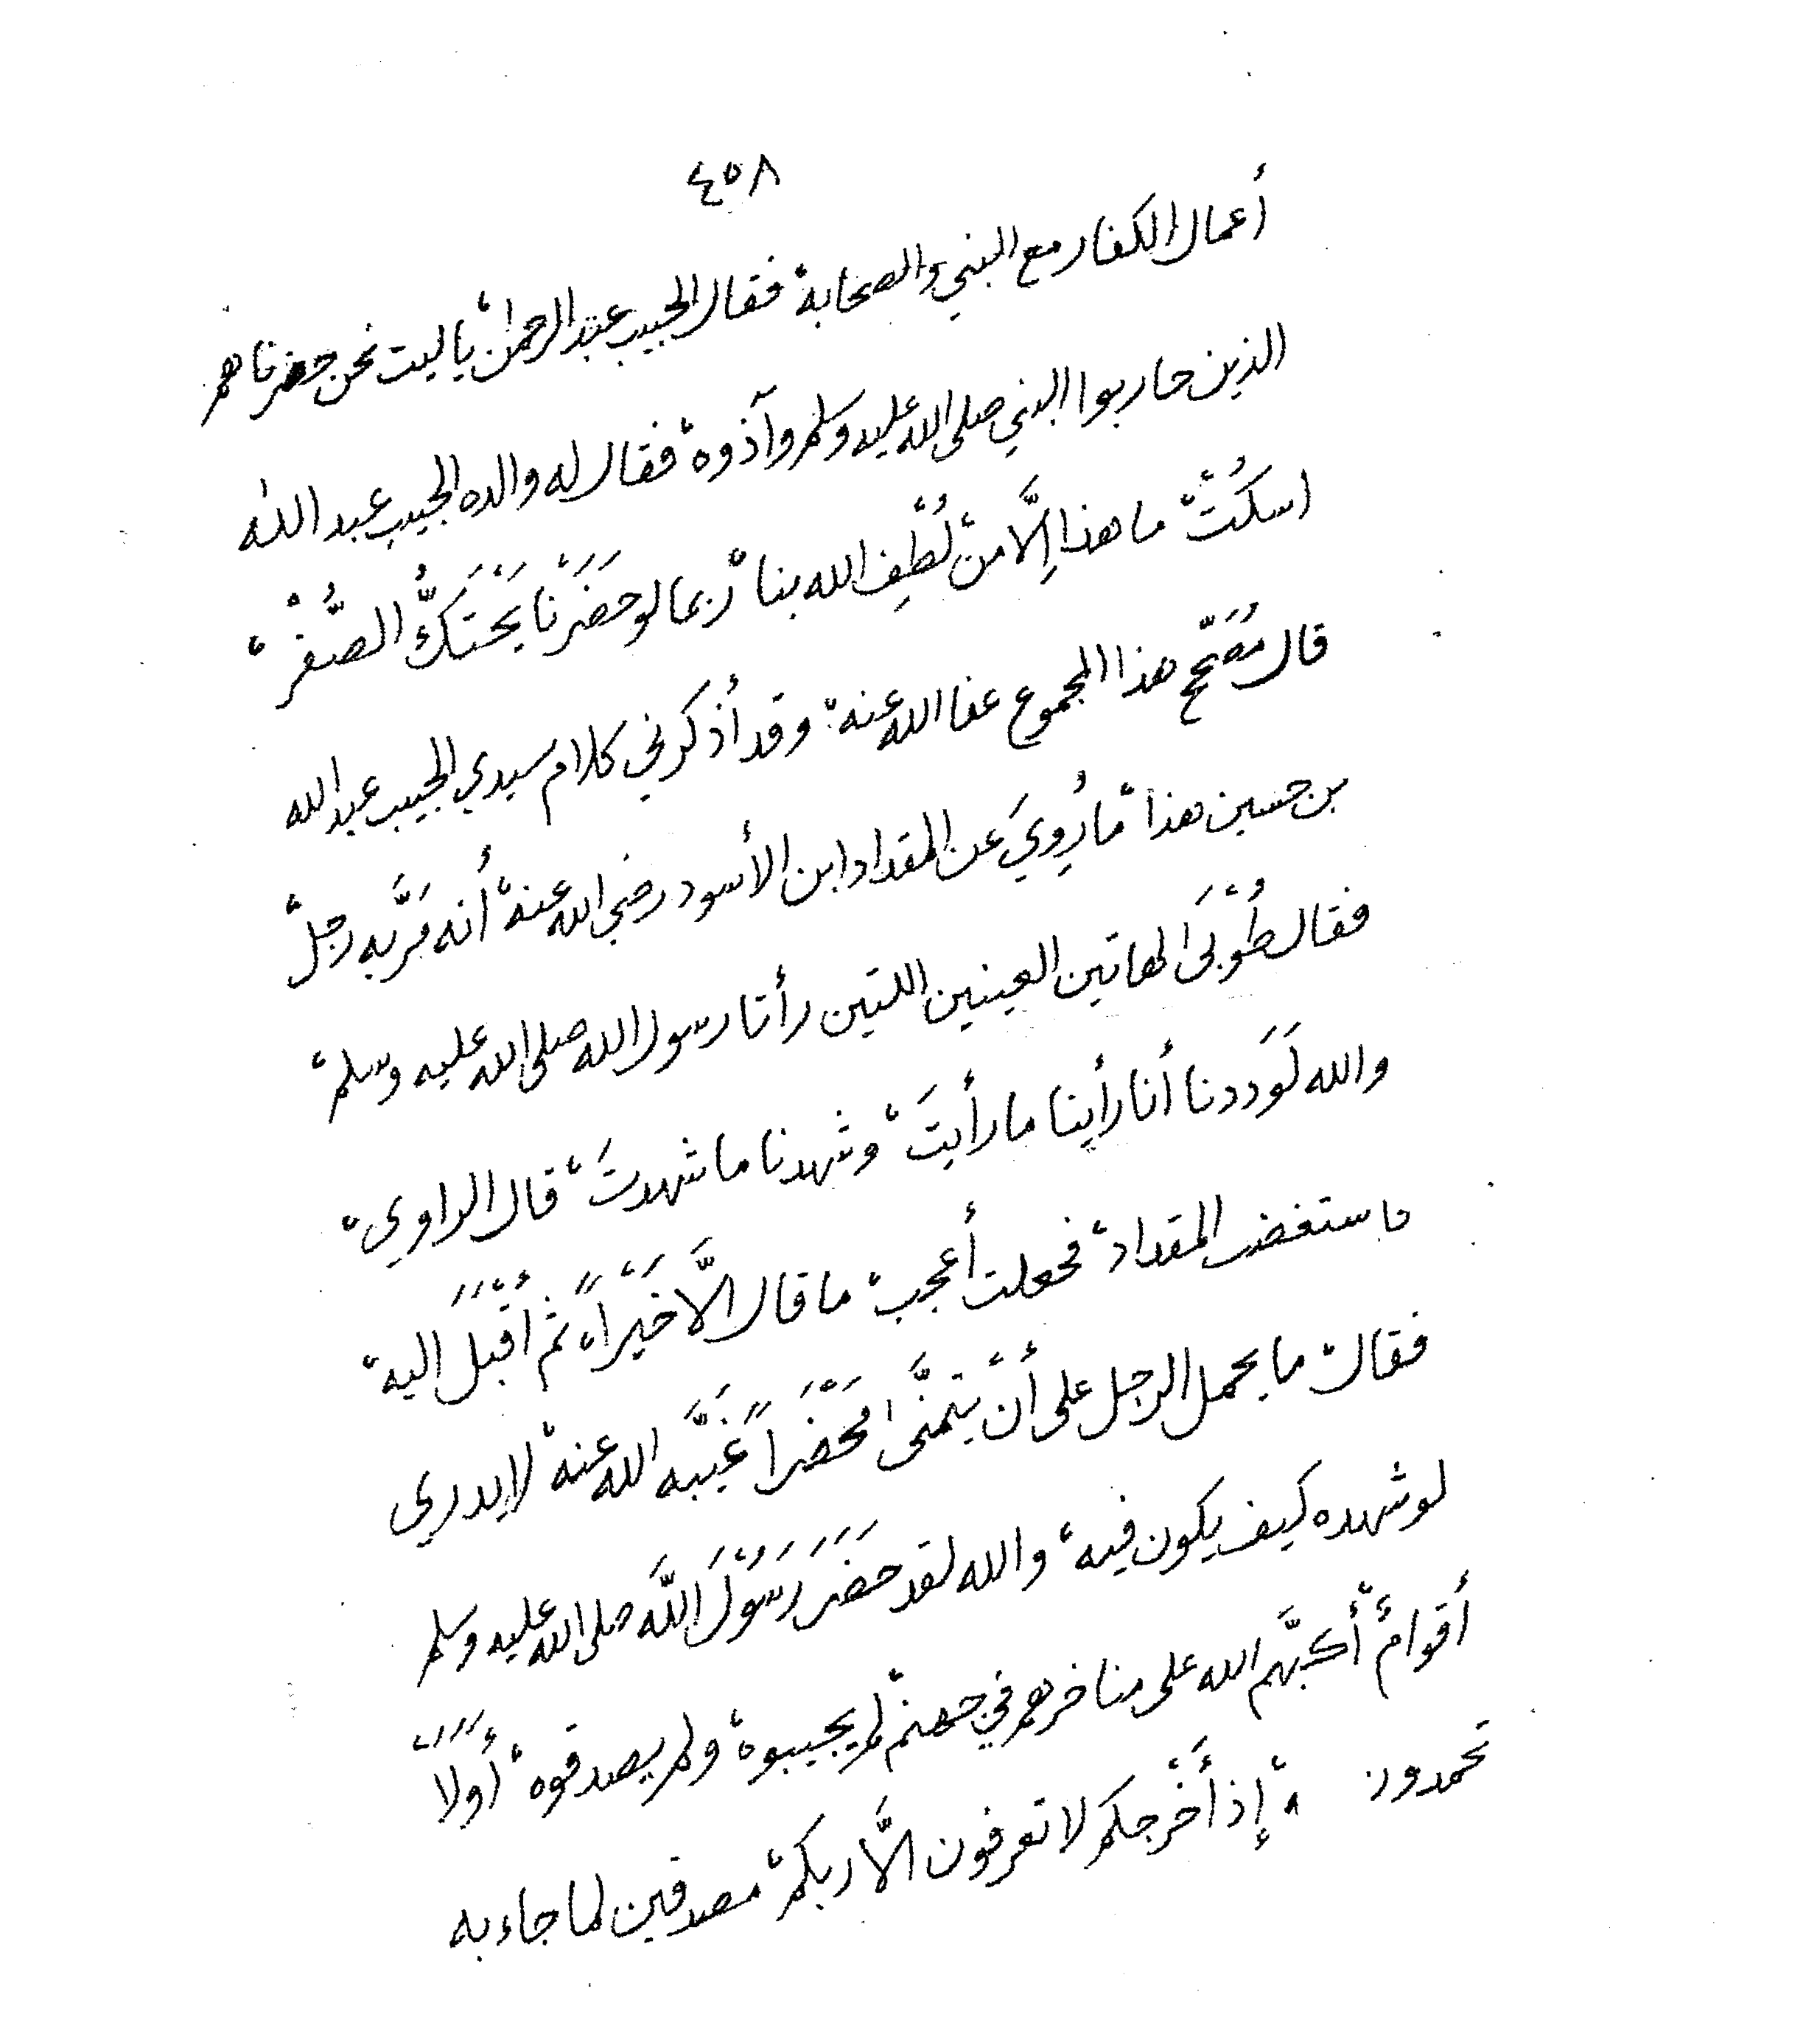 ٤٥٨
أعمال الكفار مع النبي والصحابة، فقال الحبيب عبدالرحمن، يا ليت نحن حضرناهم
الذين حاربوا النبي صلى الله عليه وسلم وآذوه، فقال له والده الحبيب عبد الله
اسكُتْ، ما هذا إلَّا من لُطْفِ الله بنا، ربما لو حَضَرْنا يَحْتَكُّ الصُّفْر،
قال هذا المجموع عفا الله عنه، وقد أذكرني كلام سيدي الحبيب عبدالله
بن حسين هذا، ما رُوِيَ عن المقداد ابن الأسود رضي الله عنه، أنه مَرَّ به رجل،
فقال طُوْبَى لهاتين العينين اللتين رأتا رسول الله صلى الله عليه وسلم،
والله لَوَددنا أنا رأينا ما رأيتَ، وشهدنا ما شهدتَ، قال الراوي،
فاستغضب المقداد، فجعلت أعجب، ما قال إلَّا خَيْراً، ثم أَقْبَلَ اليه،
فقال، ما يحمل الرجل على أنْ يتمنَّى مَحْضَراً غَيَّبَه الله عنه، لا يدري
لو شهده كيف يكون فيه، والله لقد حَضَرَ رَسُوْلَ اللَّه صلى الله عليه وسلم
أقوامٌ، أكبَّهم الله على مناخرهم في جهنم، لم يجيبوه، ولم يصدقوه، أَوَلَا،
تحمدون ، إذ أَخْرجكم لا تعرفون إلَّا ربكم، مصدقين لما جاء به